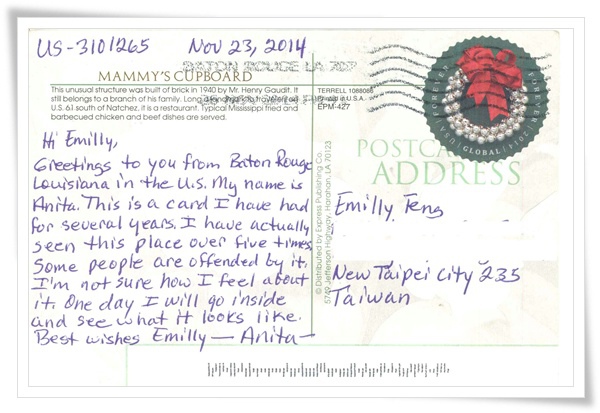 US-3101265 Nov 23, 2014
BATON ROUGE LA 707
MAMMY'S CUPBOARD
This unusual structure was built of brick in 1940 by Mr. Henry Gaudit. It
still belongs to a branch of his family. Long a to travelers on
U.S. 61 south of Natchez, it is a restaurant. Typical Mississippi fried and
barbecued chicken and beef dishes are served.
TERRELL 1088086
Printed in U.S.A.
EPM-427
Hi Emilly,
Greetings to you from Baton Rouge
Louisiana in the U.S. My name is
Anita. This is a card I have had
for several years. I have actually
seen this place over five times.
Some people are offended by it.
I'm not sure how I feel about
it. One day I will go inside
and see what it looks like.
Best wishes Emilly — Anita —
© Distributed by Express Publishing Co.
5749 Jefferson Highway, Harahan, LA 70123
GLOBAL
FOREVER
2014
USA
POSTCARD
ADDRESS
Emilly Teng
New Taipei City 235
Taiwan